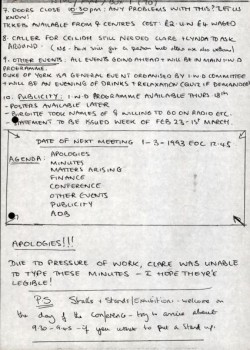 7. DOORS CLOSE 10.30pm : ANY PROBLEMS WITH THIS? LET US
KNOW!
TICKETS AVAILABLE FROM 4 CENTRES COST: £2 U-W £4 WAGED
8. CALLER FOR CEILIDH STILL NEEDED CLARE + LYNDA TO ASK
AROUND :
9. OTHER EVENTS. ALL EVENTS GOING AHEAD + WILL BE IN MAIN I.W.D
PROGRAMME.
DUKE OF YORK IS A GENERAL EVENT ORGANISED BY I.W.D COMMITTEE
+ WILL BE AN EVENING OF DRINKS + RELAXATION (QUIZ IF DEMANDED)
10. PUBLICITY: I.W.D PROGRAMME AVAILABLE THURS 4TH
- POSTERS AVAILABLE LATER
- BIRGITTE TOOK NAMES OF 4 WILLING TO GO ON RADIO ETC.
STATEMENT TO BE ISSUED WEEK OF FEB 23-1ST MARCH.
DATE OF NEXT MEETING 1-3-1993 EOC 17.45
AGENDA: APOLOGIES
MINUTES
MATTERS ARISING
FINANCE
CONFERENCE
OTHER EVENTS
PUBLICITY
AOB
APOLOGIES!!!
DUE TO PRESSURE OF WORK, CLARE WAS UNABLE
TO TYPE THESE MINUTES - I HOPE THEY'RE
LEGIBLE!
PS Stalls + Stands/Exhibition - welcome on
the day of the conference - try to arrive about
9.30-9.45 - if you want to put a stand up.